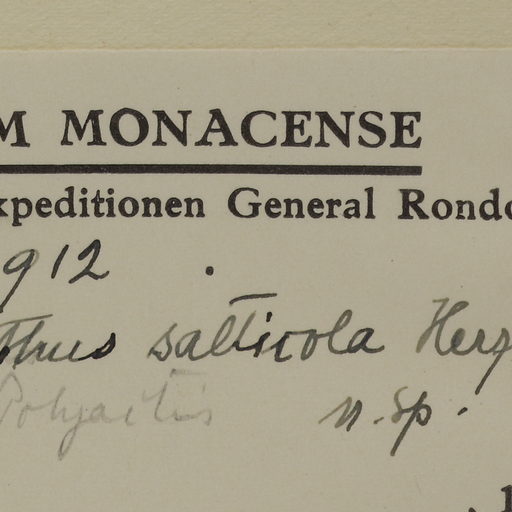 M MONACENSE
xpeditionen General Rondo
912 .
thus salticola Herz
Polyactis n. sp.
. 1